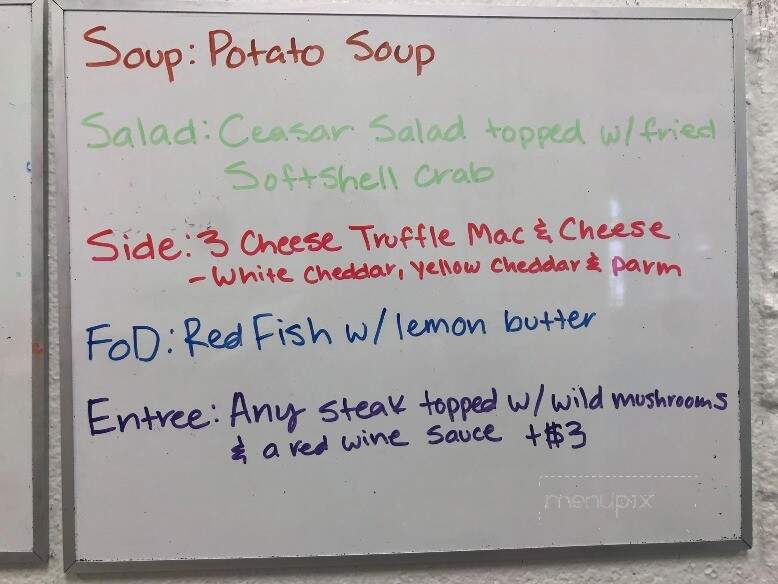 Soup: Potato Soup
Salad: Ceasar Salad topped w/fried
Softshell Crab
Side: 3 Cheese Truffle Mac & Cheese
- White Cheddar, Yellow Cheddar & parm
FoD: Red Fish w/ lemon butter
Entree: Any steak topped w/ wild mushrooms
& a red wine sauce +$3
menupix